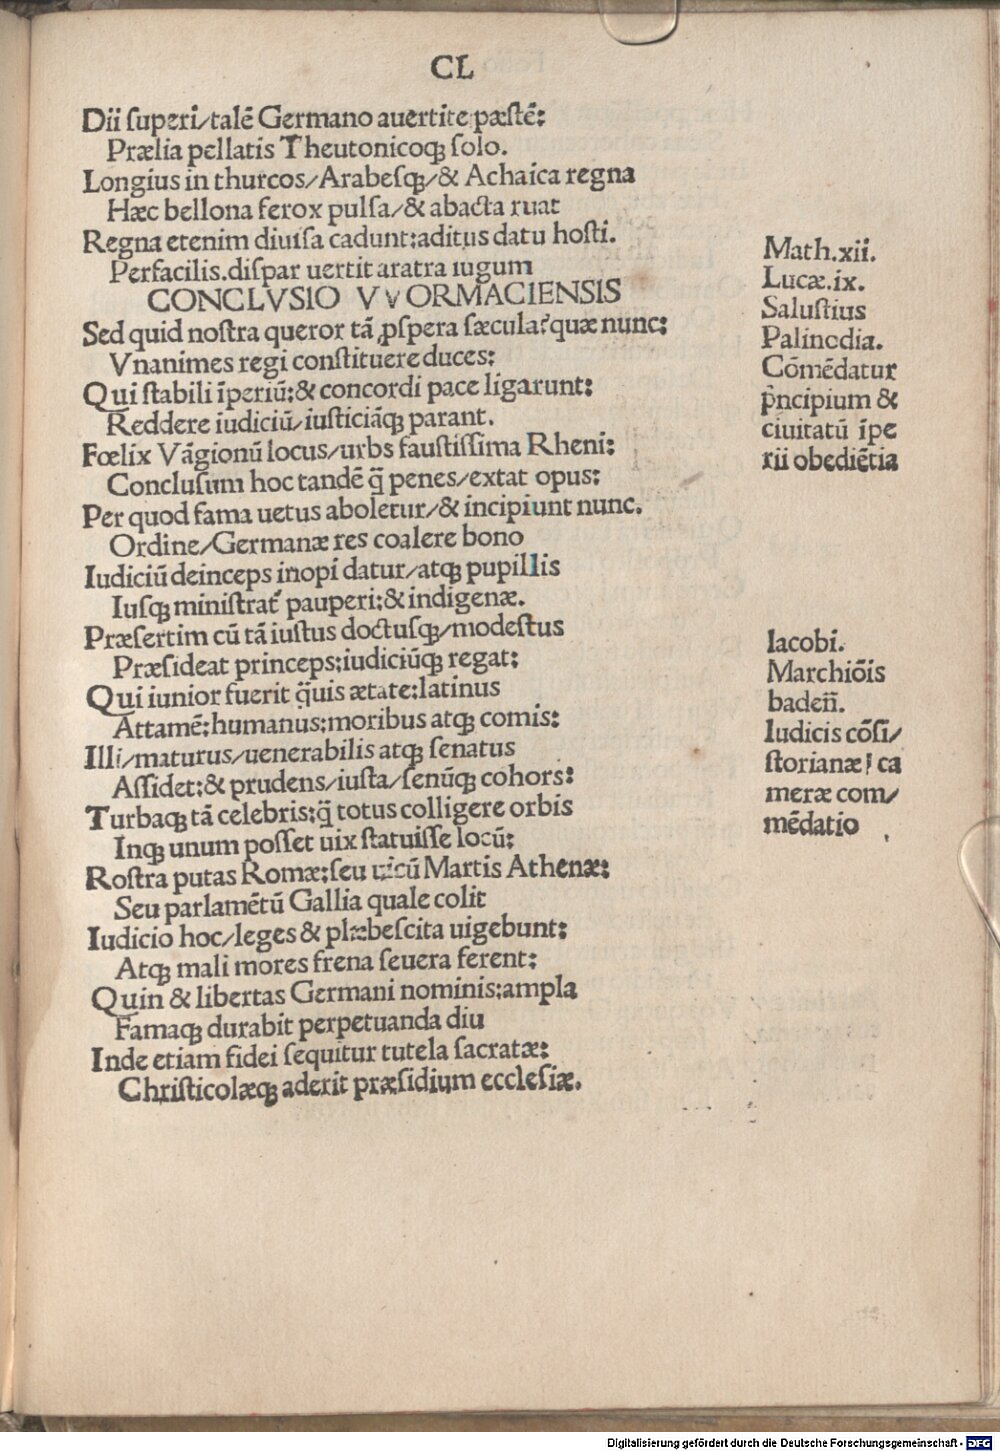 CL
Dii superi/talē Germano auertite pæstē:
Prælia pellatis Theutonicoqꝫ solo.
Longius in thurcos/Arabesqꝫ/& Achaica regna
Hæc bellona ferox pulsa/& abacta ruat
Regna etenim diuisa cadunt:aditus datu hosti.
Perfacilis.dispar uertit aratra iugum
CONCLVSIO VvORMACIENSIS
Sed quid nostra queror tā ꝓspera sæcula?quæ nunc:
Vnanimes regi constituere duces:
Qui stabili īperiū:& concordi pace ligarunt:
Reddere iudiciū/iusticiāqꝫ parant.
Fœlix Vāgionū locus/urbs faustissima Rheni:
Conclusum hoc tandē q̄ penes/extat opus:
Per quod fama uetus aboletur/& incipiunt nunc.
Ordine/Germanæ res coalere bono
Iudiciū deinceps inopi datur/atqꝫ pupillis
Iusqꝫ ministrat᷑ pauperi:& indigenæ.
Præsertim cū tā iustus doctusqꝫ/modestus
Præsideat princeps:iudiciūqꝫ regat:
Qui iunior fuerit q̈uis ætate:latinus
Attamē:humanus:moribus atqꝫ comis:
Illi/maturus/uenerabilis atqꝫ senatus
Assidet:& prudens/iusta/senūqꝫ cohors:
Turbaqꝫ tā celebris:q̄ totus colligere orbis
Inqꝫ unum posset uix statuisse locū:
Rostra putas Romæ:seu uicū Martis Athenæ:
Seu parlamētū Gallia quale colit
Iudicio hoc/leges & plæbescita uigebunt:
Atqꝫ mali mores frena seuera ferent:
Quin & libertas Germani nominis:ampla
Famaqꝫ durabit perpetuanda diu
Inde etiam fidei sequitur tutela sacratæ:
Christicolæqꝫ aderit præsidium ecclesiæ.
Math.xii.
Lucæ.ix.
Salustius
Palinodia.
Cōmēdatur
p̄ncipium &
ciuitatū īpe
rii obediētia
Iacobi.
Marchiōis
badeñ.
Iudicis cōsi/
storianæꝗ ca
meræ com/
mēdatio
Digitalisierung gefördert durch die Deutsche Forschungsgemeinschaft - DFG